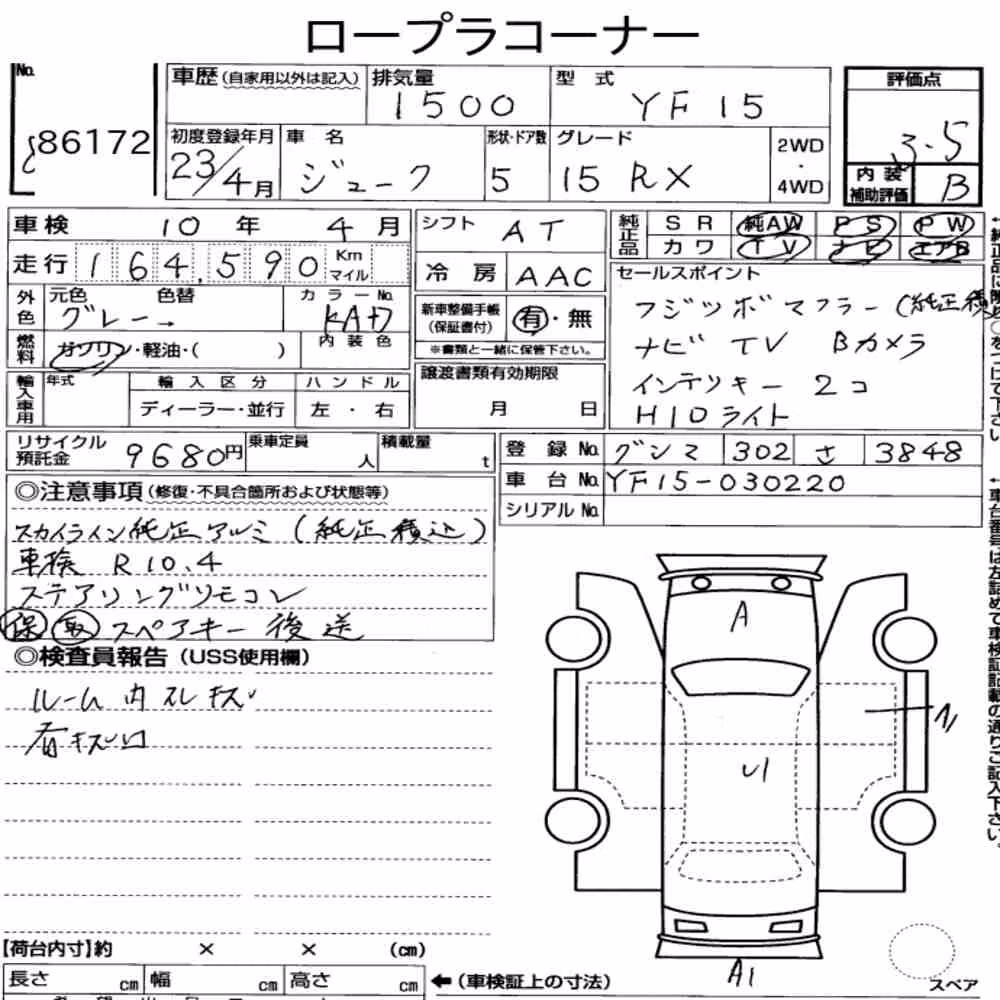 ロープラコーナー
No.
86172
車歴(自家用以外は記入)
排気量
1500
型式
YF15
評価点
3.5
内装補助評価
B
初度登録年月
23/4月
車名
ジューク
形状・ドア数
5
グレード
15RX
2WD・4WD
車検 10年 4月
走行 164,590 Km マイル
シフト AT
冷房 AAC
純正品 SR 純AW PS PW
カワ TV ナビ エアB
外色 元色 色替 カラーNo.
グレー→ KAD
内装色
燃料 ガソリン・軽油・( )
新車整備手帳(保証書付) 有・無
※書類と一緒に保管下さい。
セールスポイント
フジツボマフラー(純正積込
ナビ TV Bカメラ
インテリキー 2コ
HIDライト
輸入車用 年式 輸入区分 ハンドル
ディーラー・並行 左・右
譲渡書類有効期限
月 日
リサイクル預託金 9680円
乗車定員 人
積載量 t
登録No. グンマ 302 さ 3848
車台No. YF15-030220
シリアルNo.
◎注意事項(修復・不具合箇所および状態等)
スカイライン純正アルミ(純正積込)
車検 R10.4
ステアリングリモコン
保 取 スペアキー後送
◎検査員報告(USS使用欄)
ルーム内スレキズ
有キズ凹
A
U1
A1
【荷台内寸】約 × × (cm)
長さ cm 幅 cm 高さ cm
←(車検証上の寸法)
スペア
←車台番号は左詰めで車検証記載の通りご記入下さい。